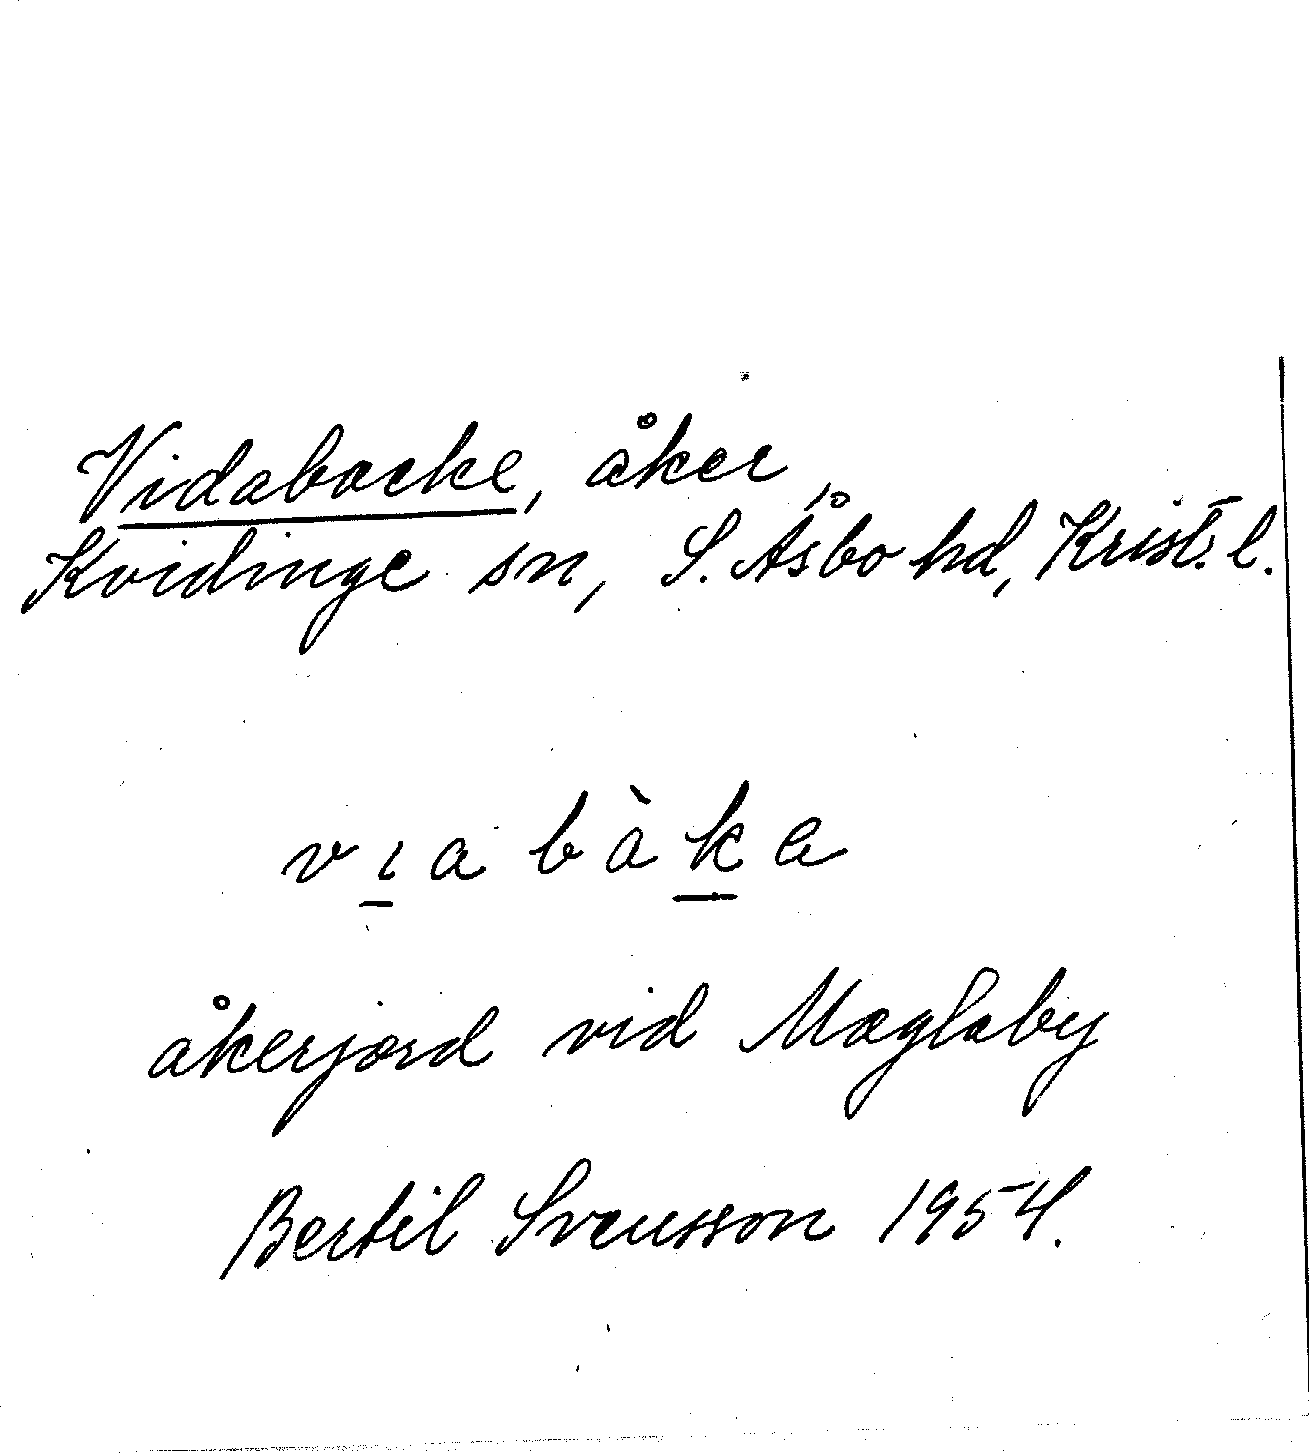 Vidabacke, åker,
Kvidinge sn, S. Åsbo hd, Krist:s l.
vıa bàka
åkerjord vid Maglaby
Bertil Svensson 1954.